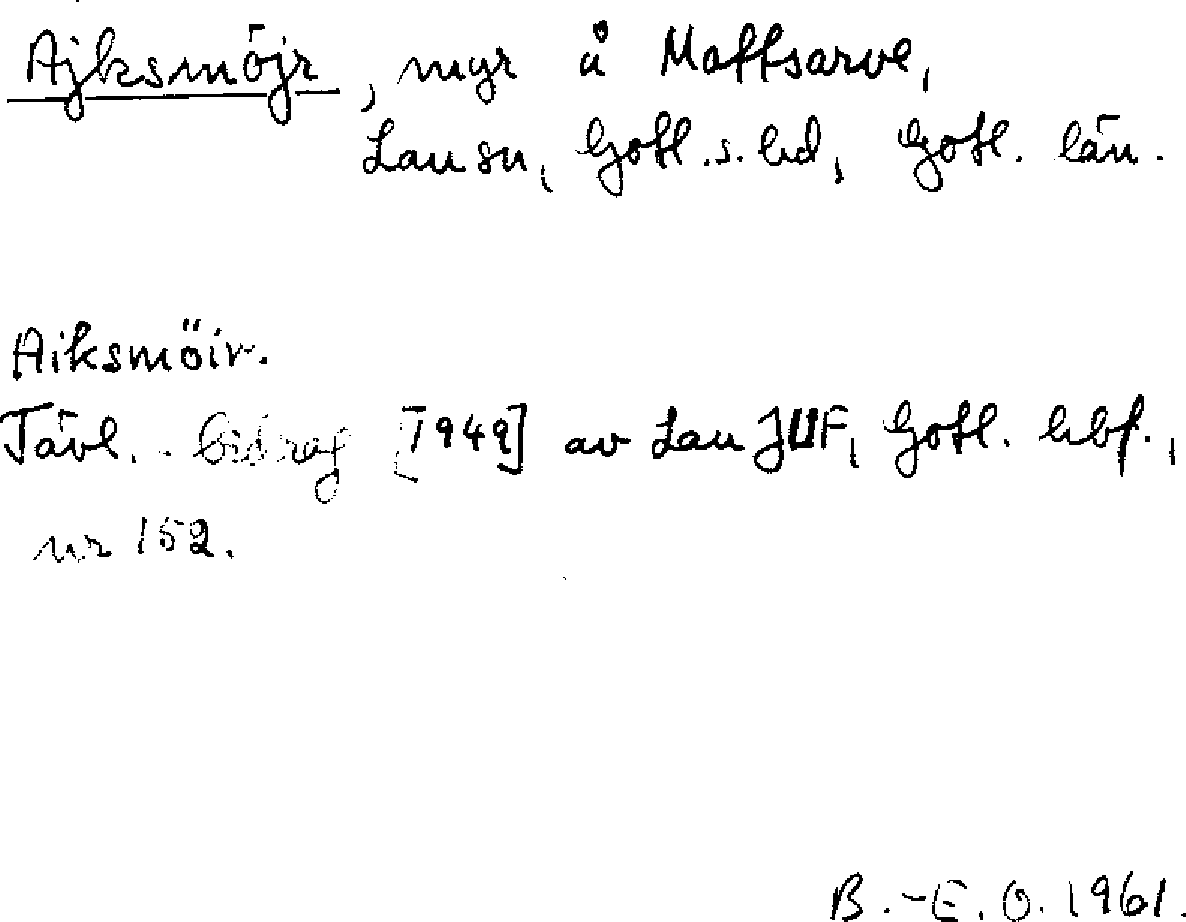 Ajksmöjr, myr å Mattsarve,
Lau sn, Gotl. s. hd, Gotl. län.
Aiksmöir.
Tävl.-bidrag [1949] av Lau JUF, Gotl. hbf.,
nr 152.
B.-E. O. 1961.